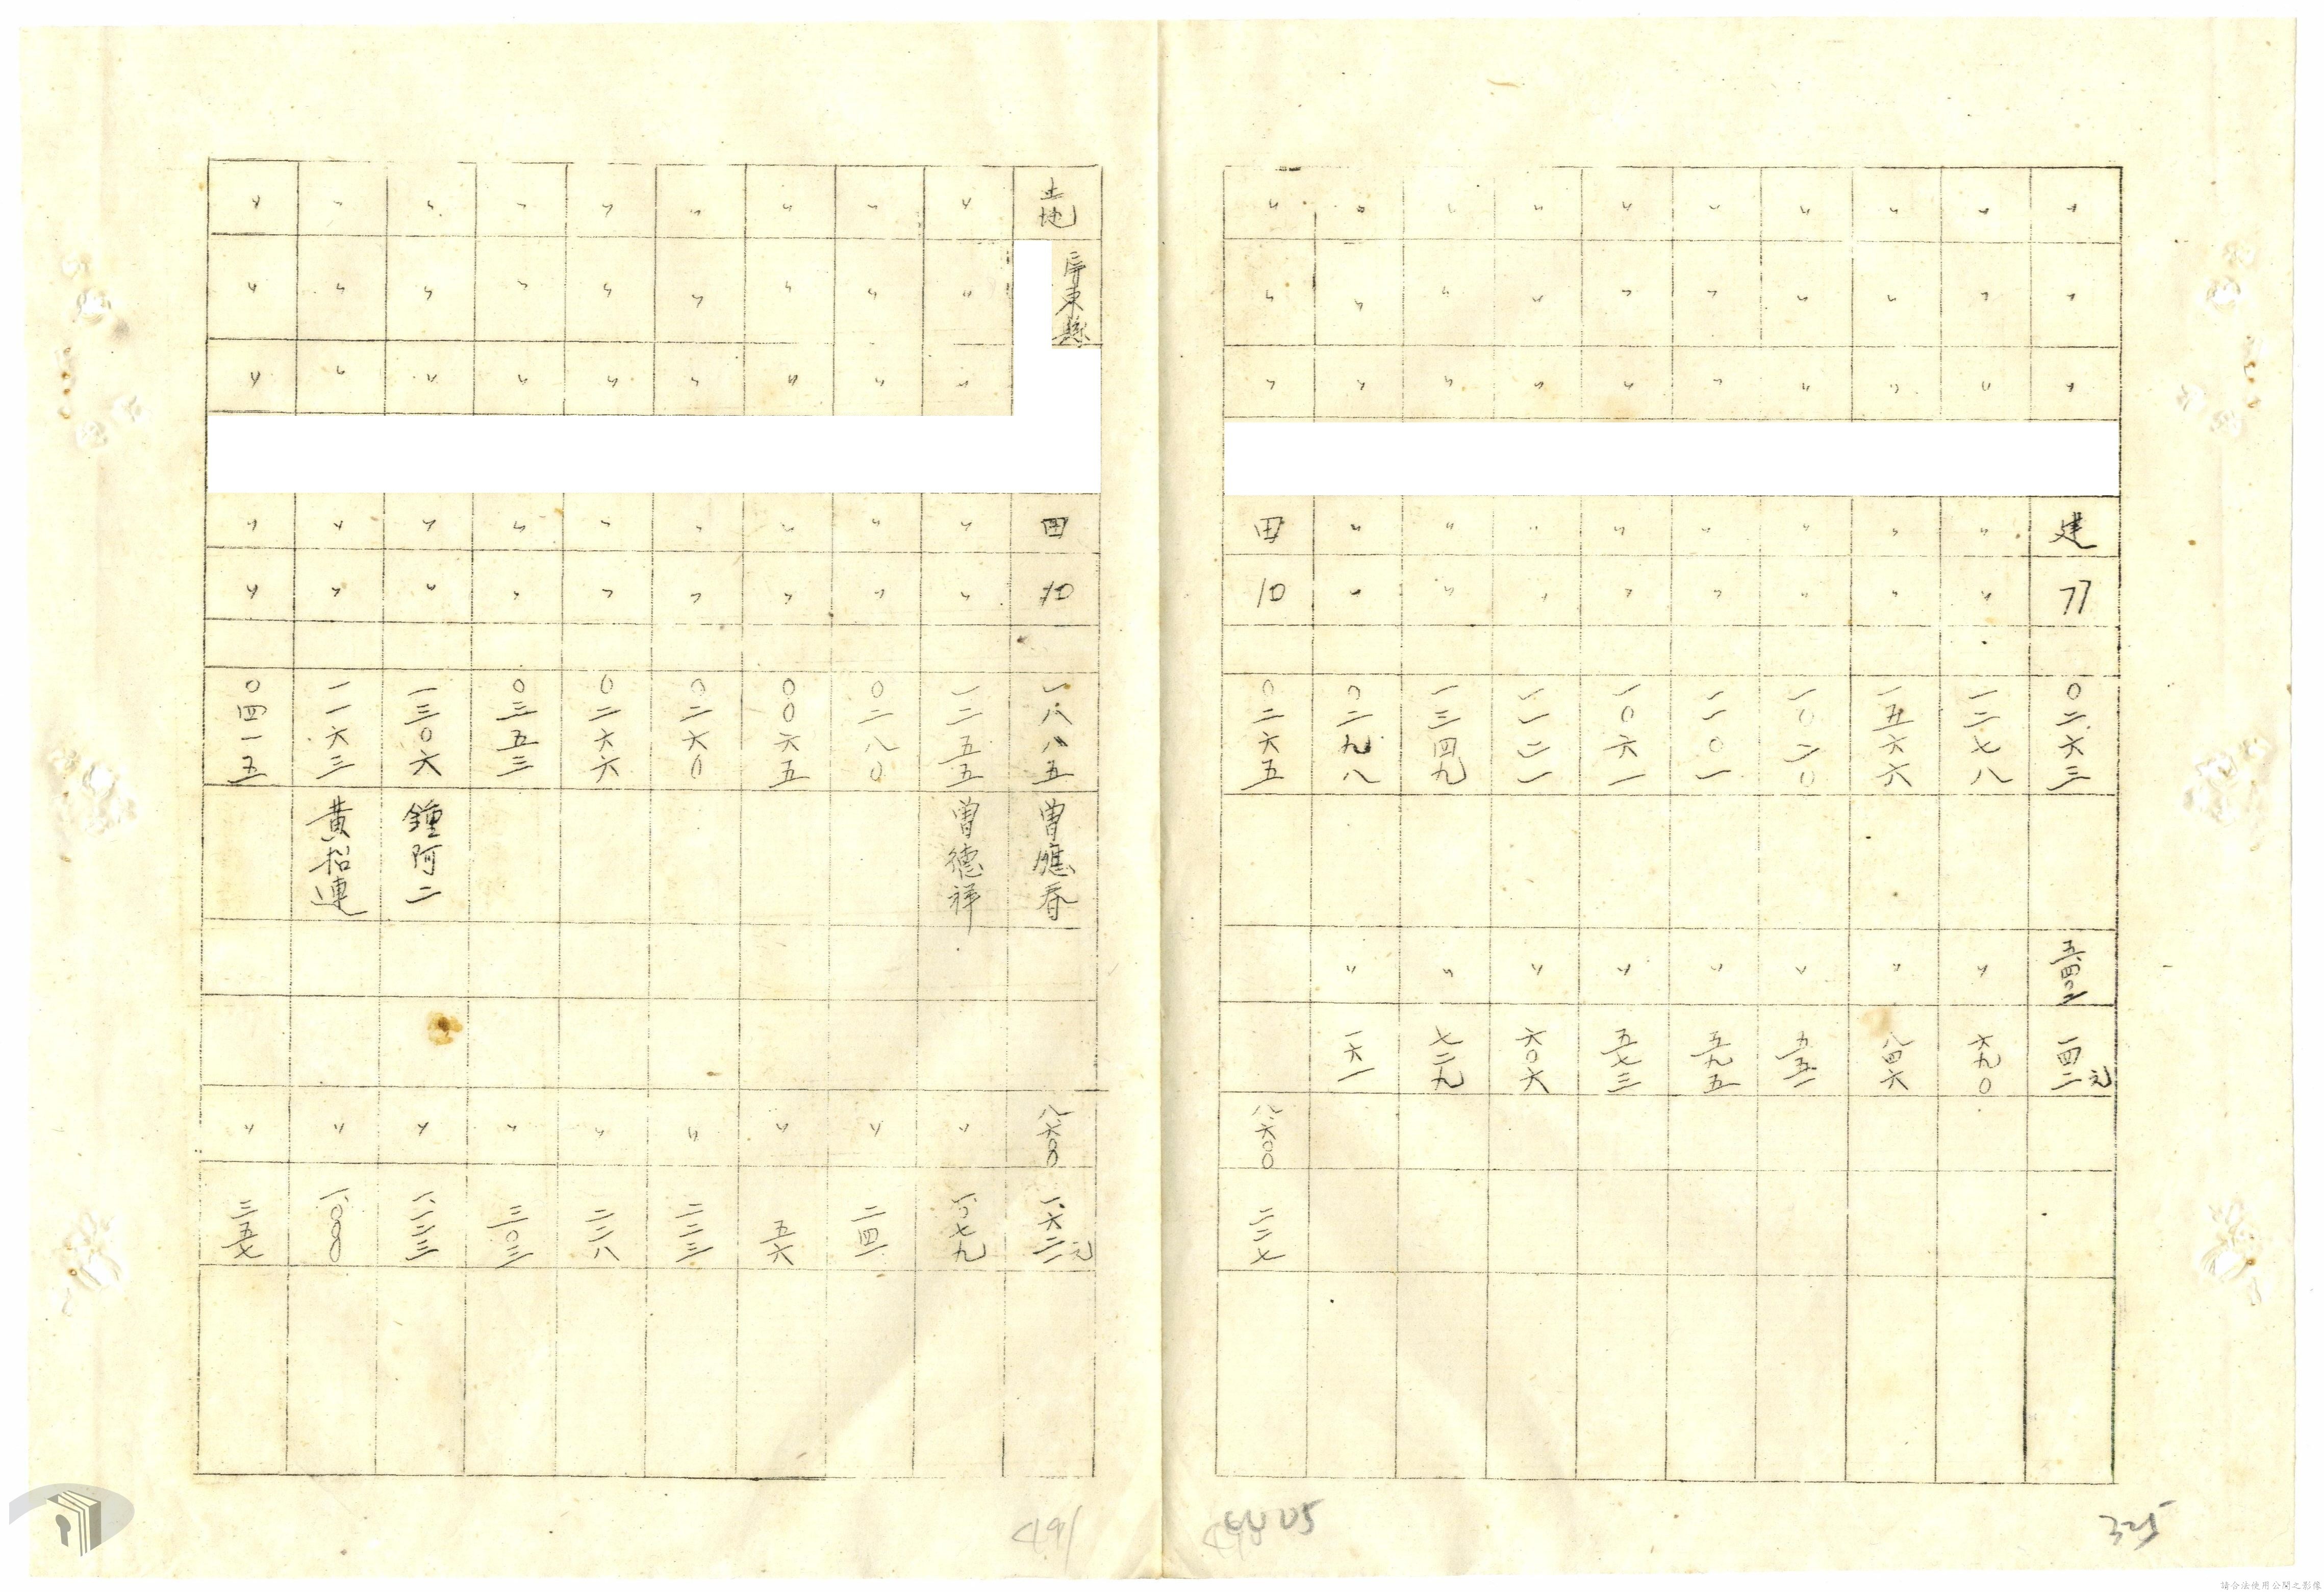 〃 〃 〃 建 77 〇二六三 五四〇〇 一四二元
〃 〃 〃 〃 〃 一二七八 〃 六九〇
〃 〃 〃 〃 〃 一五六六 〃 八四六
〃 〃 〃 〃 〃 一〇二〇 〃 五五一
〃 〃 〃 〃 〃 一一〇一 〃 五九五
〃 〃 〃 〃 〃 一〇六一 〃 五七三
〃 〃 〃 〃 〃 一一二一 〃 六〇六
〃 〃 〃 〃 〃 一三四九 〃 七二九
〃 〃 〃 〃 〃 〇二九八 〃 一六一
〃 〃 〃 田 10 〇二六五 八六〇〇 二二七
325
土地 屏東縣 田 10 一八八五 曾應春 八六〇〇 一、六二一元
〃 〃 〃 〃 〃 一二五五 曾德祥 〃 一、〇七九
〃 〃 〃 〃 〃 〇二八〇 〃 二四一
〃 〃 〃 〃 〃 〇〇六五 〃 五六
〃 〃 〃 〃 〃 〇二六〇 〃 二二三
〃 〃 〃 〃 〃 〇二六六 〃 二二八
〃 〃 〃 〃 〃 〇三五三 〃 三〇三
〃 〃 〃 〃 〃 一三〇六 鍾阿二 〃 一、一二三
〃 〃 〃 〃 〃 一一六三 黃招連 〃 一、〇〇〇
〃 〃 〃 〃 〃 〇四一五 〃 三五七
491
請合法使用公開之影像